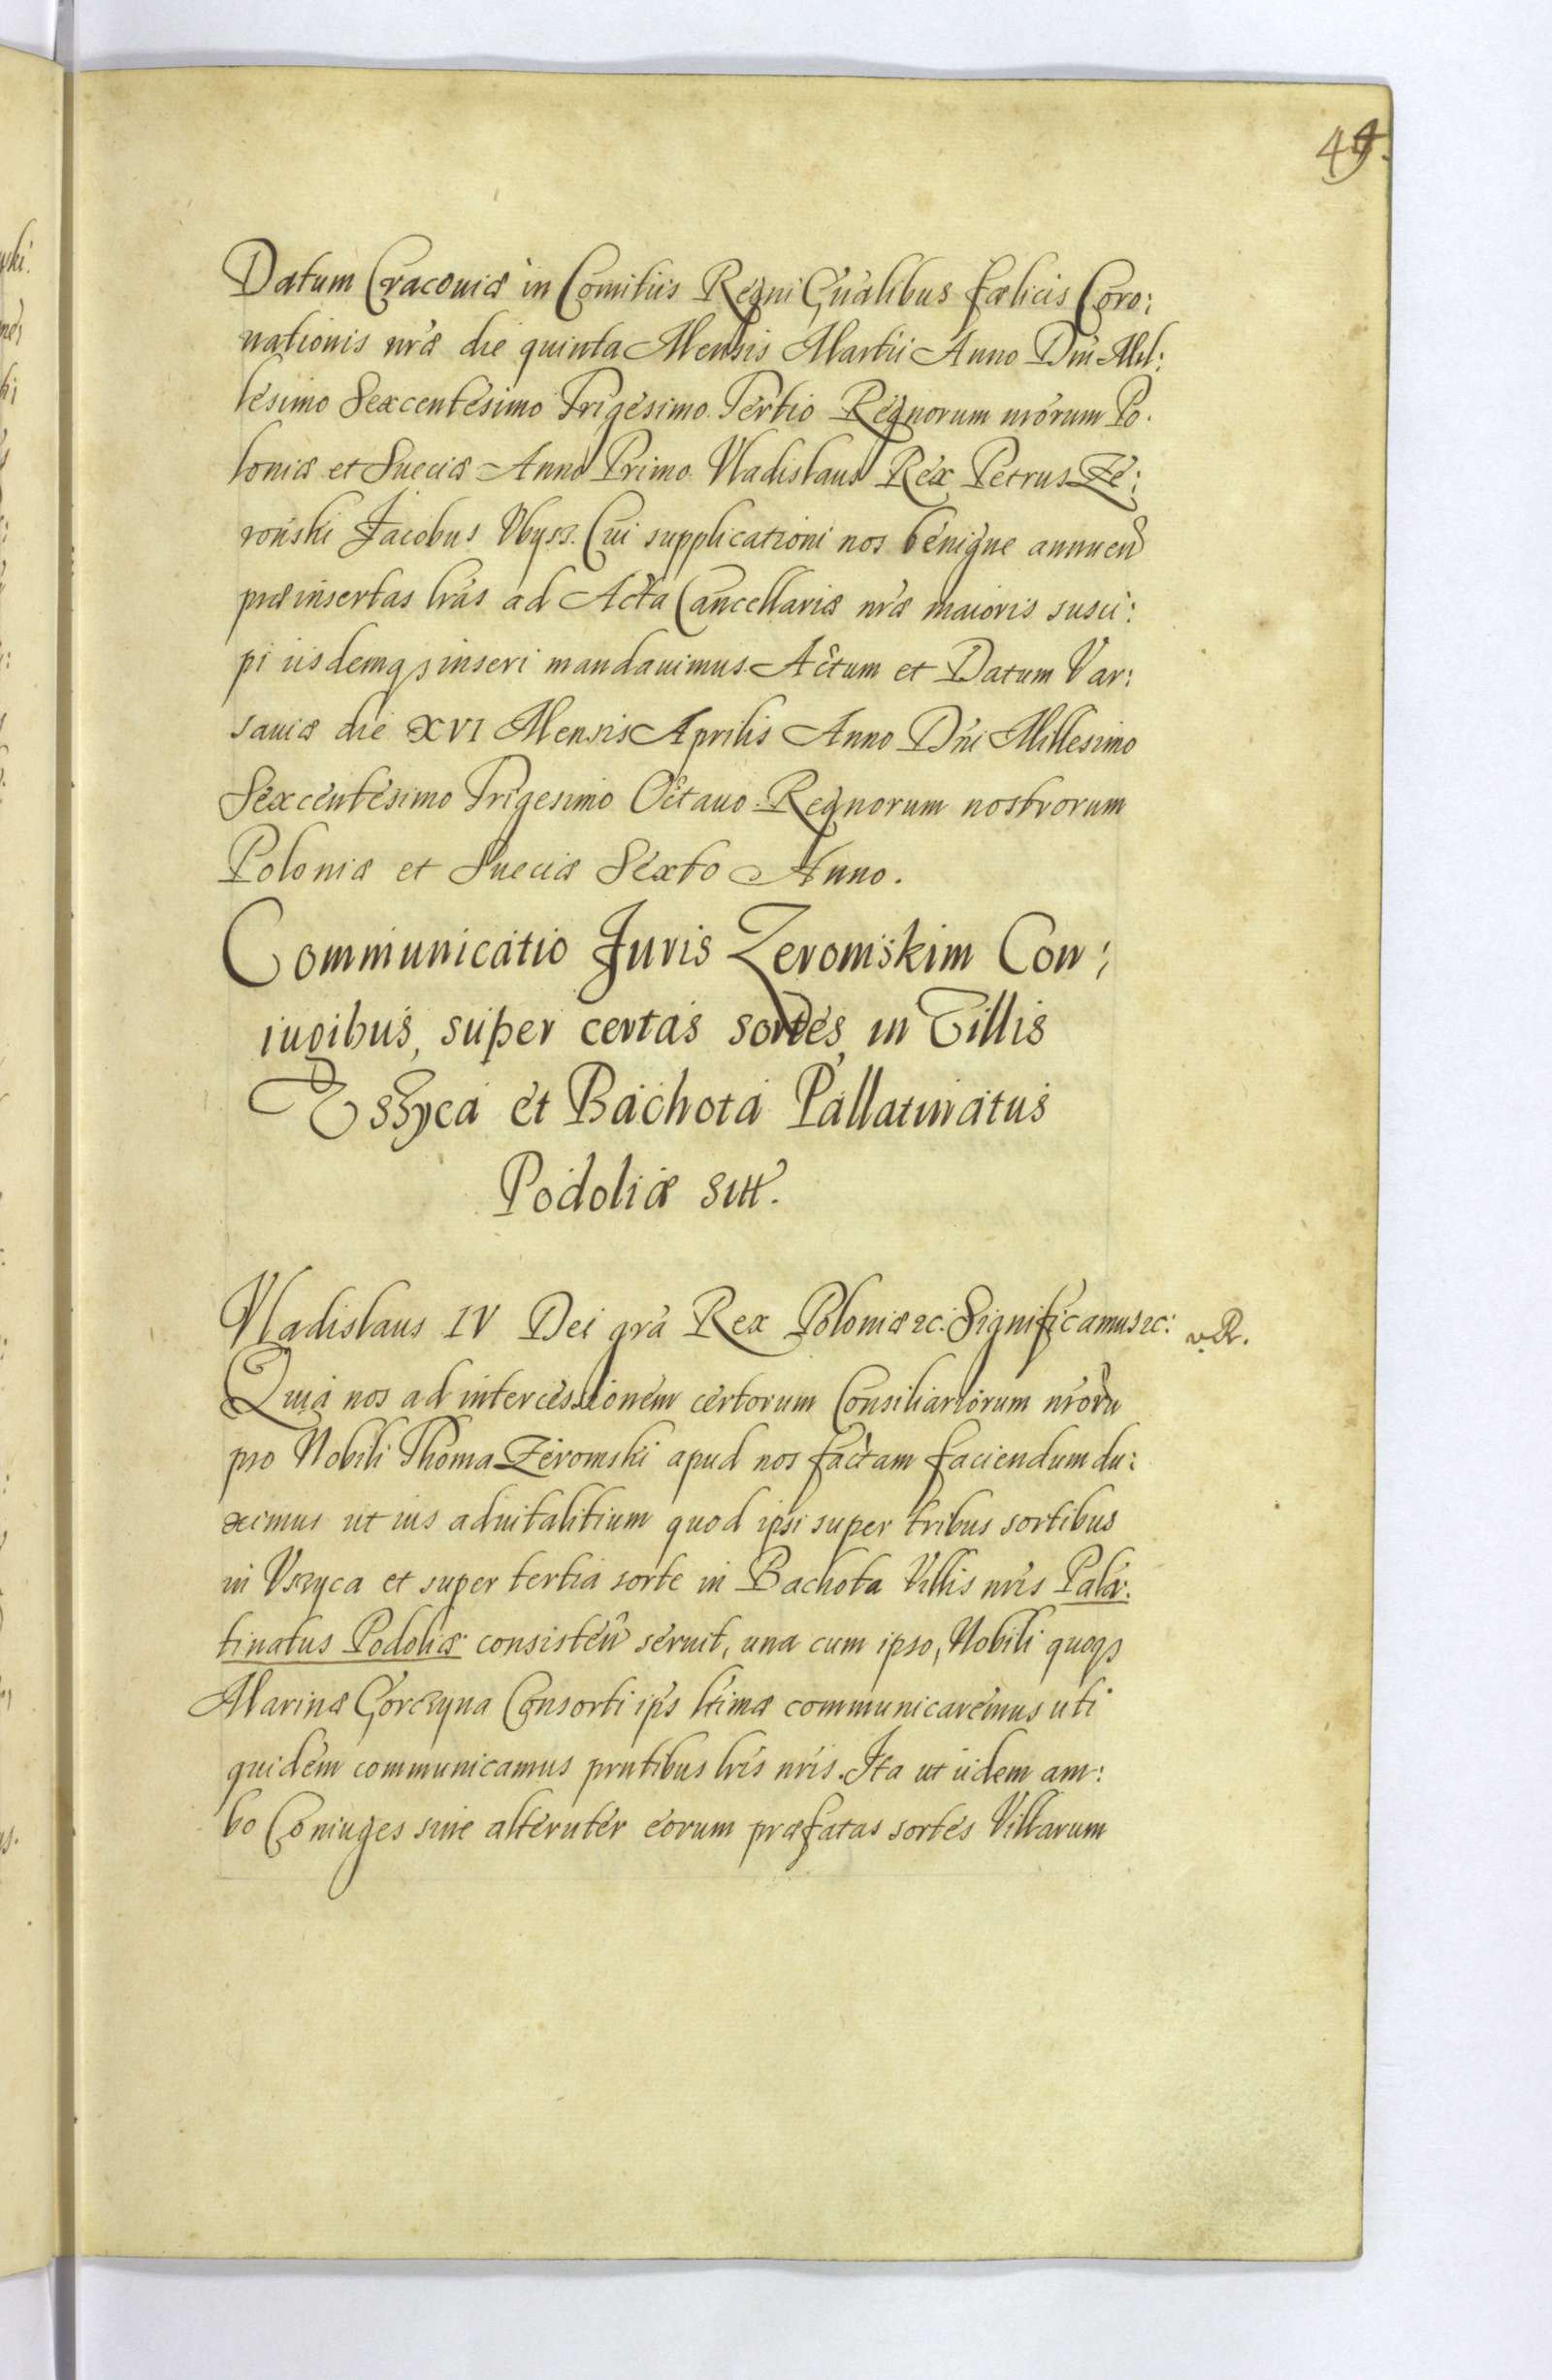 49.
Datum Cracoviæ in Comitiis Regni Gnalibus fœlicis Coro:
nationis nræ die quinta Mensis Martii Anno Dni Mil:
lesimo Sexcentesimo Trigesimo Tertio Regnorum nrorum Po.
loniæ et Sueciæ Anno Primo Vladislaus Rex Petrus Ze:
ronski Jacobus Vbysz. Cui supplicationi nos benigne annuen
præinsertas lras ad Acta Cancellariæ nræ maioris susci:
pi iisdemqз inseri mandauimus Actum et Datum Var:
sauiæ die XVI Mensis Aprilis Anno Dni Millesimo
Sexcentesimo Trigesimo Octauo Regnorum nostrorum
Poloniæ et Sueciæ Sexto Anno.
Communicatio Juris Zeromskim Con:
iugibus, super certas sortes, in Villis
Vszyca et Bachota Pallatinatus
Podoliæ sitt.
Vladislaus IV Dei gra Rex Poloniæ &c. Significamus &c: v.R.
Quia nos ad intercessionem certorum Consiliariorum nroru
pro Nobili Thoma Zeromski apud nos factam faciendum du:
ximus ut ius aduitalitium quod ipsi super tribus sortibus
in Vszyca et super tertia sorte in Bachota Villis nris Pala:
tinatus Podoliæ consisten seruit, una cum ipso, Nobili quoqз
Marinæ Gorczyna Consorti ips ltimæ communicaremus uti
quidem communicamus pntibus lris nris. Ita ut iidem am:
bo Coniuges siue alteruter eorum præfatas sortes Villarum